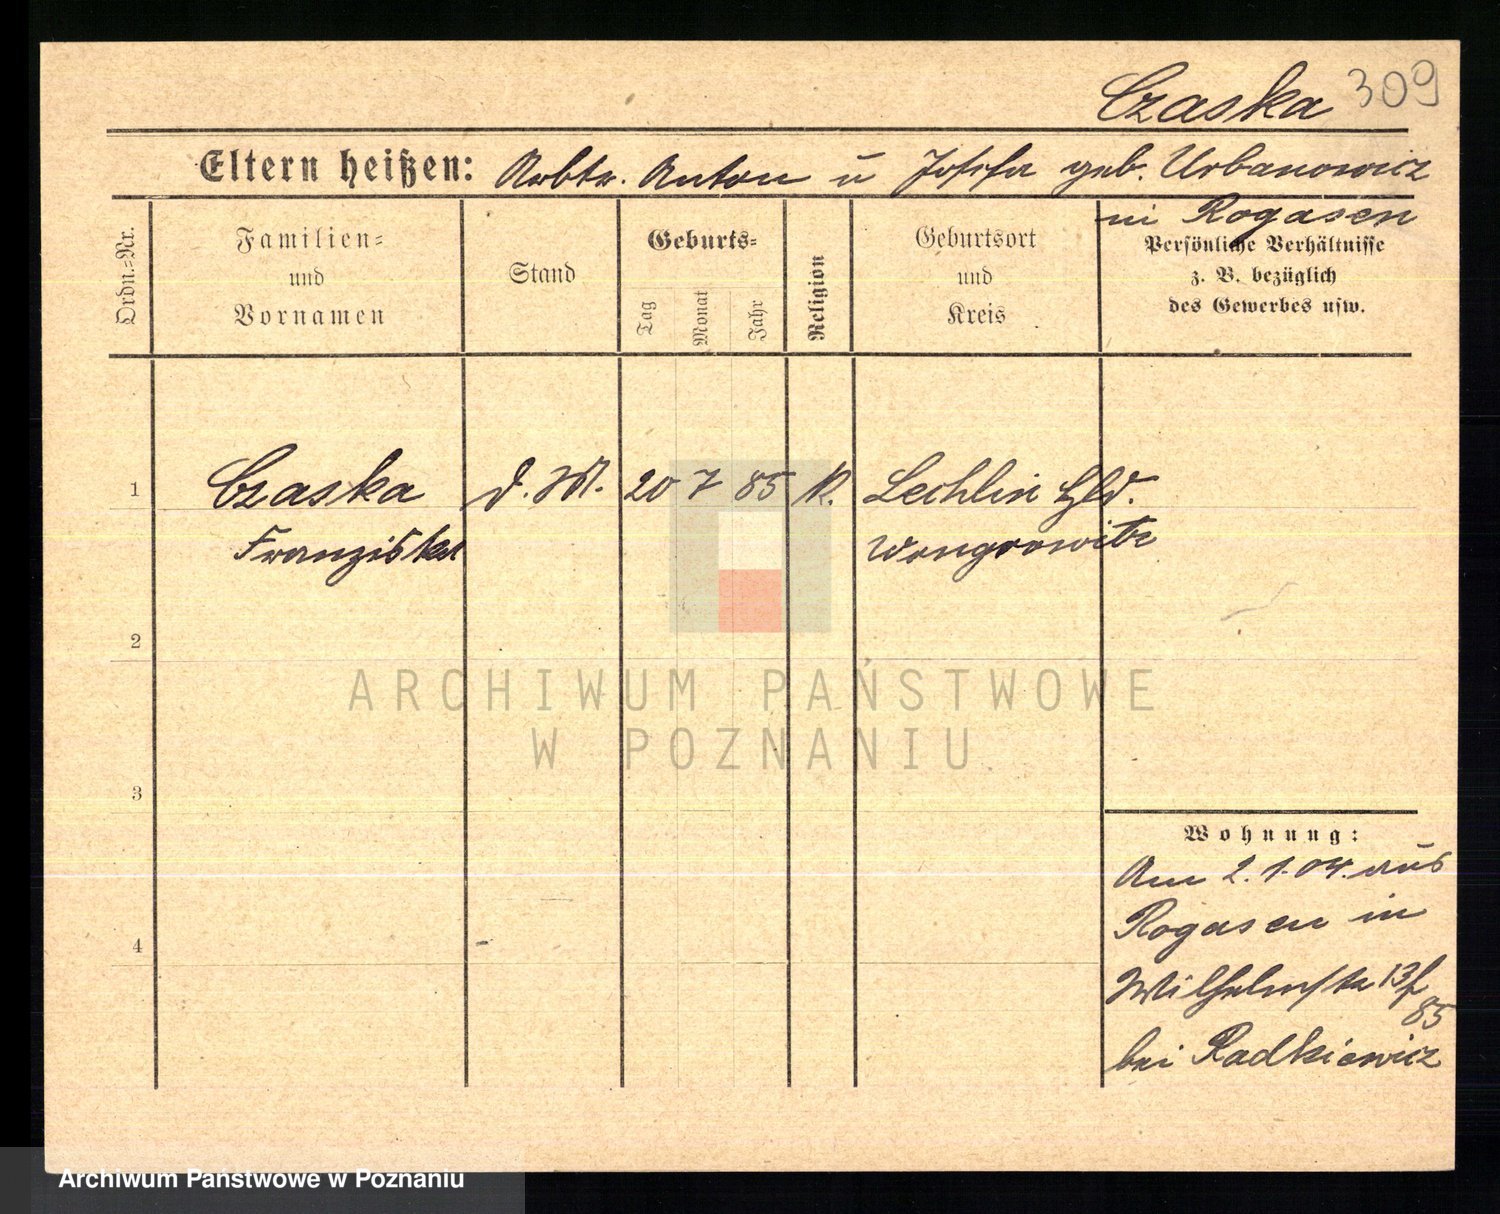 Czaska 309
Eltern heißen: Arbtr. Anton u Josefa geb. Urbanowicz
in Rogasen
Ordn.-Nr.
Familien-
und
Vornamen
Stand
Geburts-
Tag
Monat
Jahr
Religion
Geburtsort
und
Kreis
Persönliche Verhältnisse
z. B. bezüglich
des Gewerbes usw.
1 Czaska d. M. 20 7 85 K. Lechlin Hld.
Franziska Wongrowitz
2
3
4
Wohnung:
Am 2.1.04. aus
Rogasen in
Wilhelmstr 13
85
bei Radkiewicz
ARCHIWUM PAŃSTWOWE
W POZNANIU
Archiwum Państwowe w Poznaniu